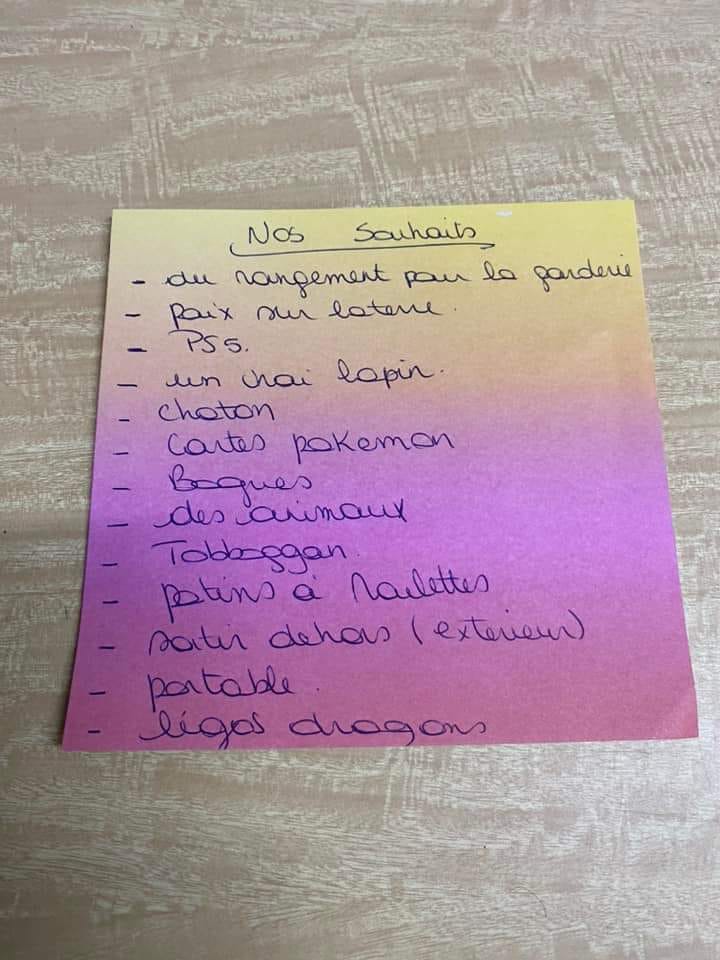 Nos Souhaits
- du rangement pour la garderie
- paix sur laterre.
- PS5.
- un vrai lapin.
- chaton
- Cartes pokemon
- Bagues
- des animaux
- Tobboggan.
- patins à roulettes
- sortir dehors (exterieur)
- portable.
- légos dragons